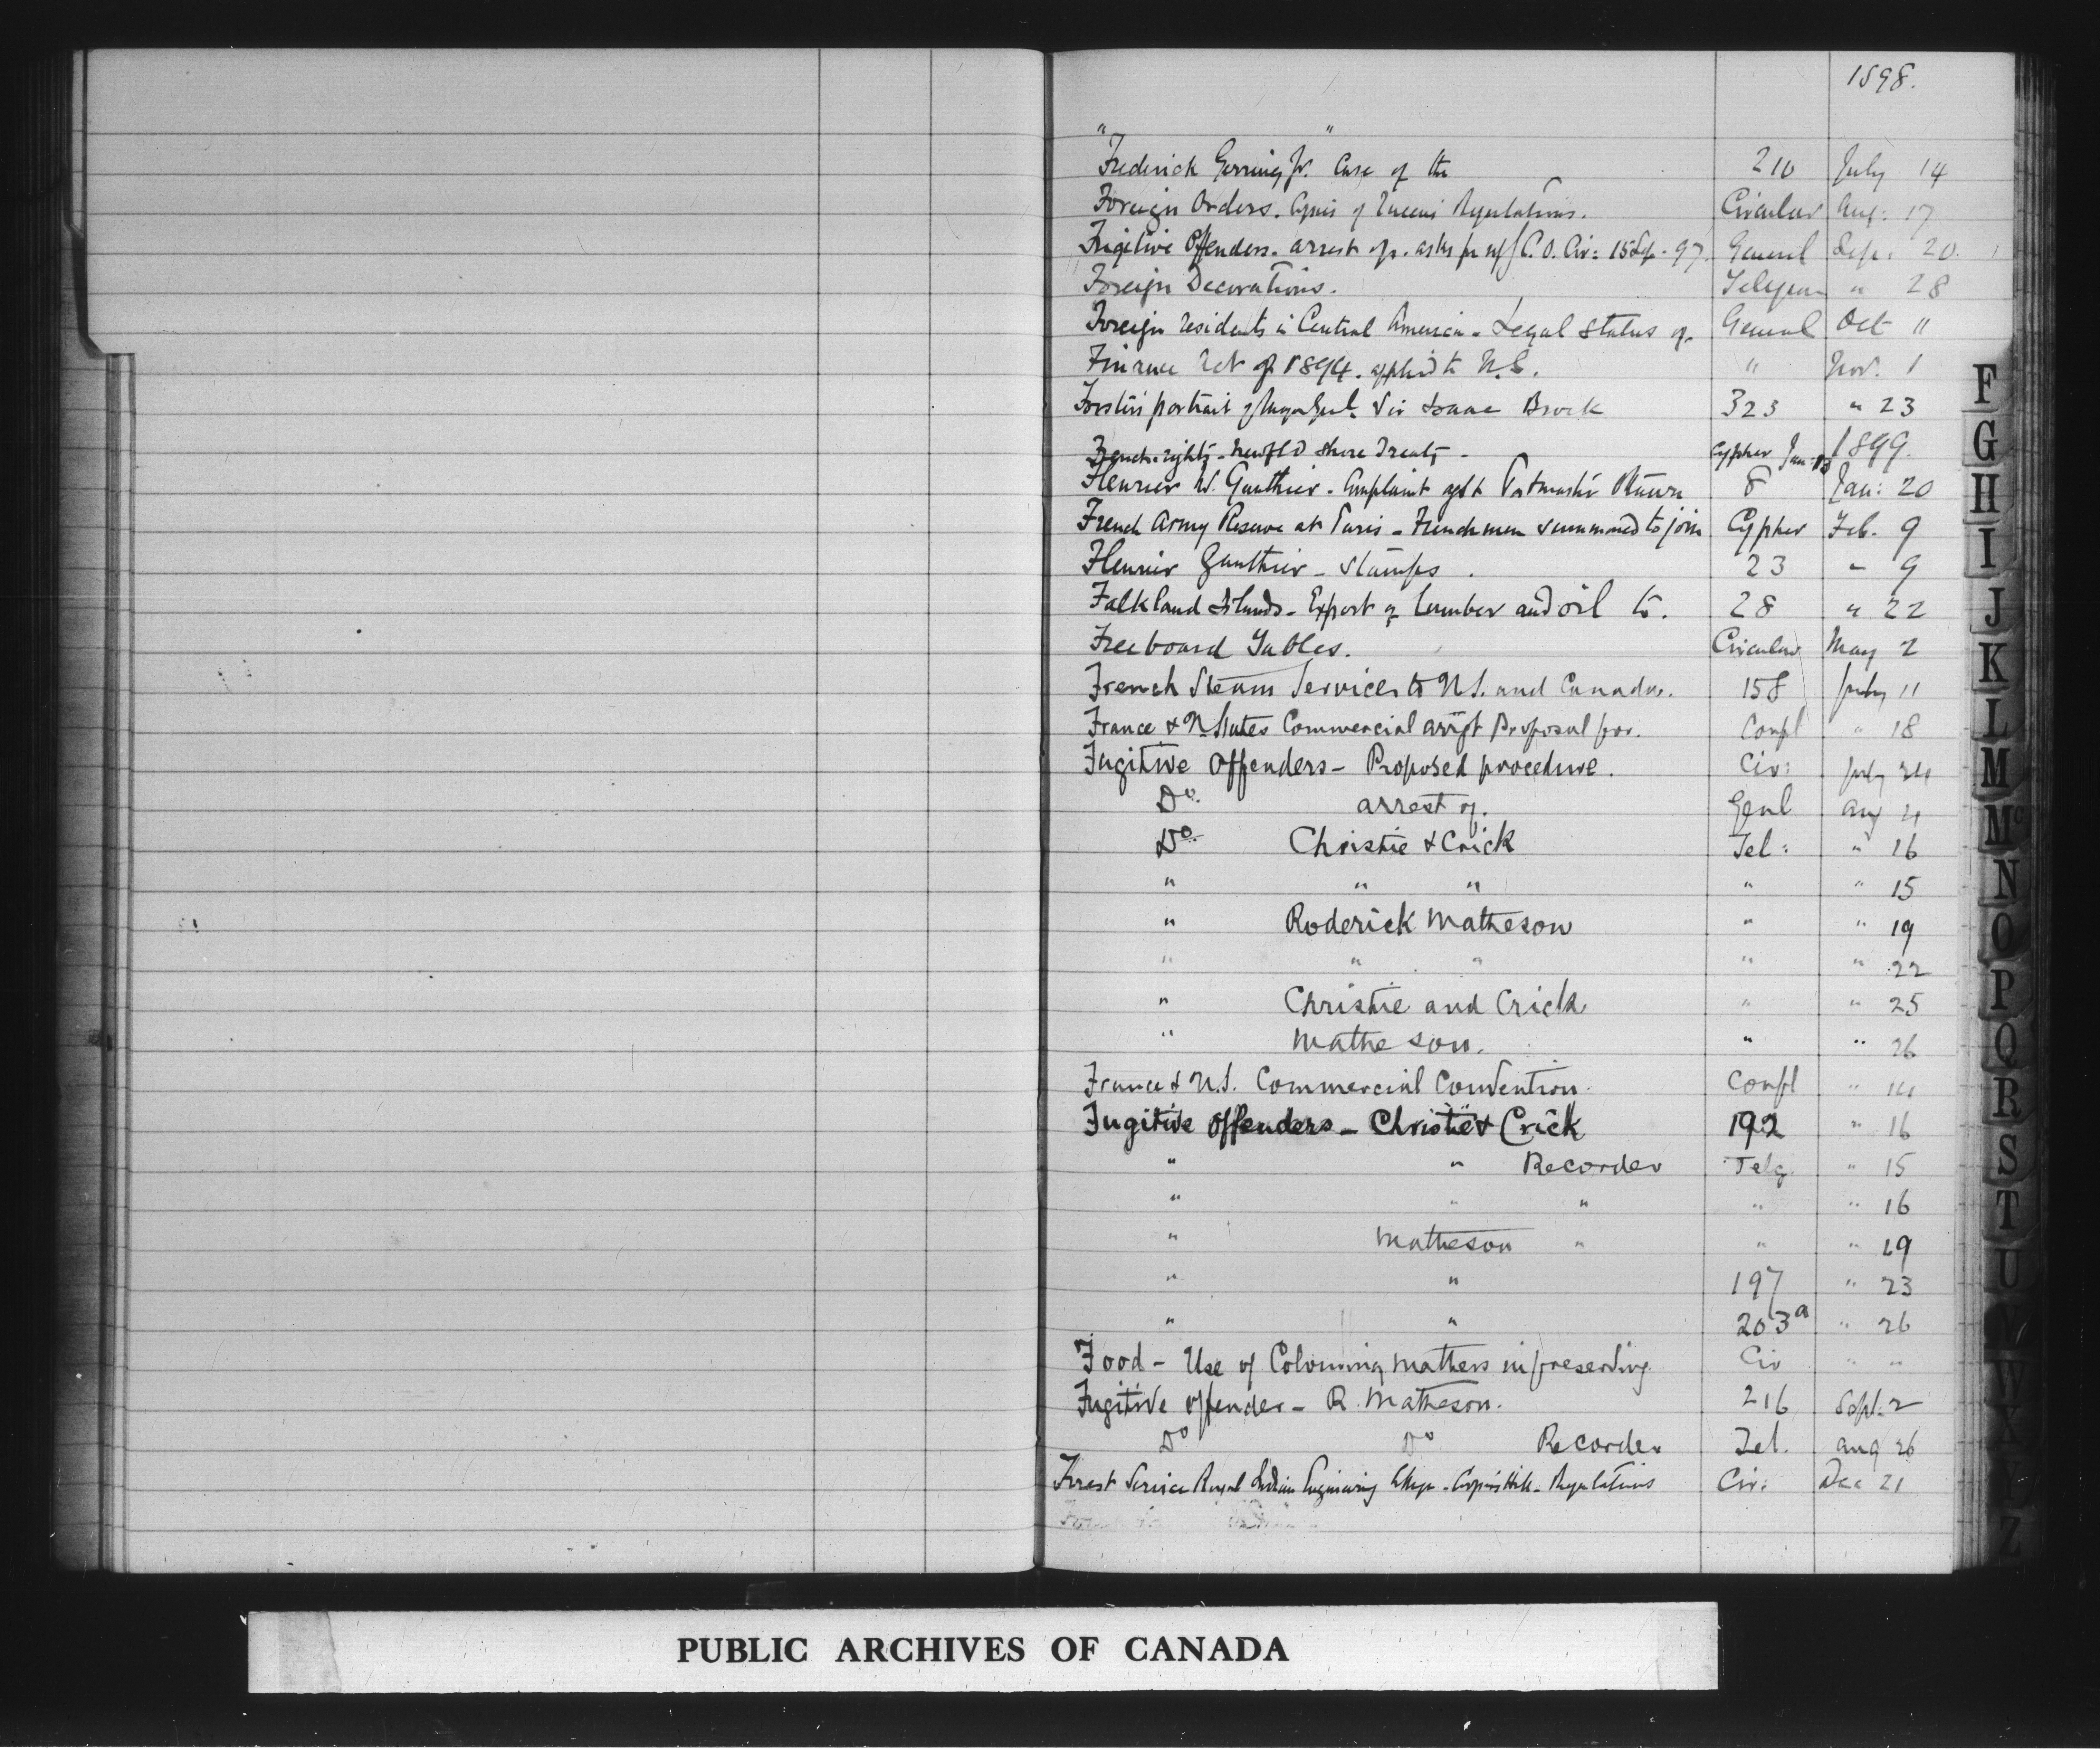 1898.
" "
Frederick Gerring Jr. Case of the 210 July 14
Foreign Orders. Copies of Queens Regulations. Circular Aug: 17
Fugitive Offenders. arrest of. asks for C.O. Cir: 15 Sep. 97. General Sep: 20.
Foreign Decorations. Telegram " 28
Foreign residents in Central America. Legal Status of. General Oct 11
Finance Act of 1894. applied to " Nov. 1
Forster's portrait of Major Genl. Sir Isaac Brock 323 " 23
1899.
French rights - Newfld Shore Treaty - Cypher Jan. 13
Fleurier W. Gauthier. Complaint agst Postmaster Ottawa 8 Jan: 20
French Army Reserve at Paris - Frenchmen summoned to join Cypher Feb. 9
Fleurier Gauthier - Stamps. 23 " 9
Falkland Islands - Export of lumber and oil to. 28 " 22
Freeboard Tables. Circular May 2
French Steam Services to U.S. and Canada. 158 July 11
France & U. States Commercial arrgt Proposal for. Confl " 18
Fugitive Offenders - Proposed procedure. Cir: July 24
Do. arrest of. Genl Aug 4
Do. Christie & Crick Tel: " 16
" " " " " 15
" Roderick Matheson " " 19
" " " " " 22
" Christie and Crick " " 25
" Matheson. " " 26
France & U.S. Commercial Convention. Confl " 14
Fugitive Offenders - Christie & Crick 192 " 16
" " Recorder Telg. " 15
" " " " " 16
" Matheson " " " 19
" " 197 " 23
" " 203a " 26
Food - Use of Colouring matters in preserving Cir " "
Fugitive Offender - R. Matheson. 216 Sept. 2
Do Do Recorder Tel. Aug 26
Forest Service Royal Indian Engineering College - Coopers Hill - Regulations Cir: Dec 21
F
G
H
I
J
K
L
M
Mc
N
O
P
Q
R
S
T
U
V
W
X
Y
Z
PUBLIC ARCHIVES OF CANADA